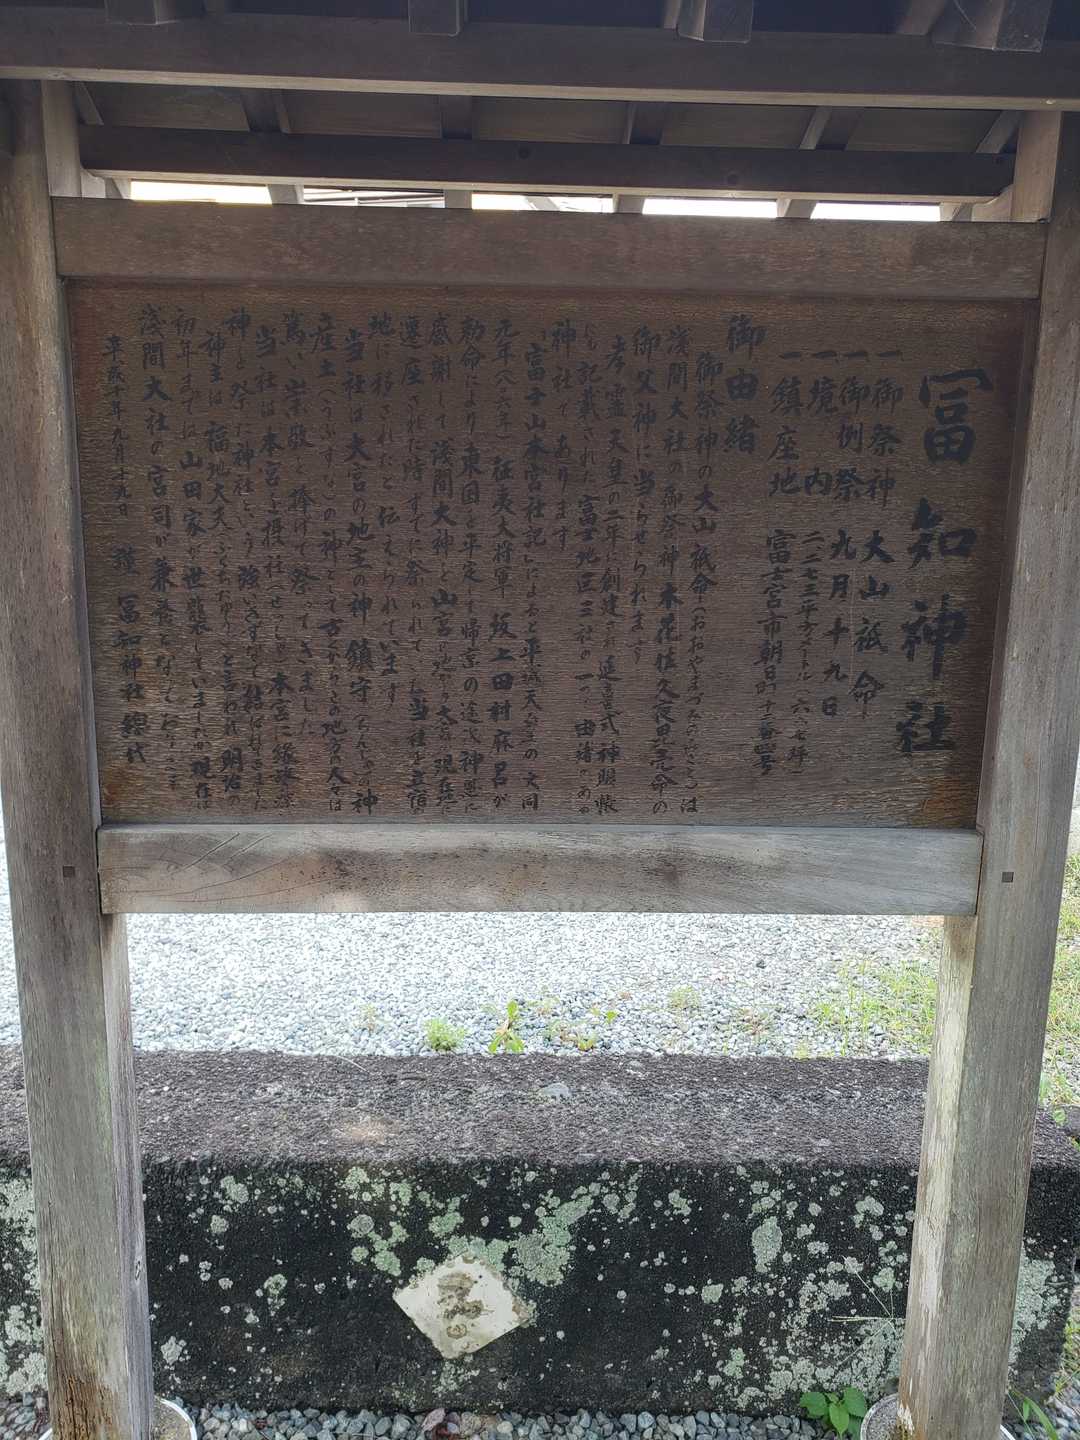 冨知神社
一御祭神 大山祇命
一御例祭 九月十九日
一境内 二二七三平方メートル(六八七坪)
一鎮座地 富士宮市朝日町十二番四号
御由緒
御祭神の大山祇命(おおやまづみのみこと)は
浅間大社の御祭神木花佐久夜毘売命の
御父神に当らせられます
孝霊天皇の二年に創建され延喜式神明帳
にも記載された富士地区三社の一つ、由緒のある
神社であります
「富士山本宮社記」によると平城天皇の大同
元年(八〇六年)征夷大将軍坂上田村麻呂が
勅命により東国を平定して帰京の途次神恩に
感謝して浅間大神を山宮の地から大宮の現在地に
遷座された時すでに祭られていた当社を立宿の
地に移されたと伝えられています
当社は大宮の地主の神 鎮守(ちんじゅ)の神
産土(うぶすな)の神として古くからこの地方の人々は
篤い崇敬を捧げて祭ってきました
当社は本宮と摂社(せっしゃ)本宮に縁故の深い
神を祭った神社という強いきずなで結ばれてきました
神主は福地大夫(ふくちたゆう)と言われ明治の
初年までは山田家が世襲していましたが現在は
浅間大社の宮司が兼務となっております
平成十年九月十九日 謹 冨知神社総代